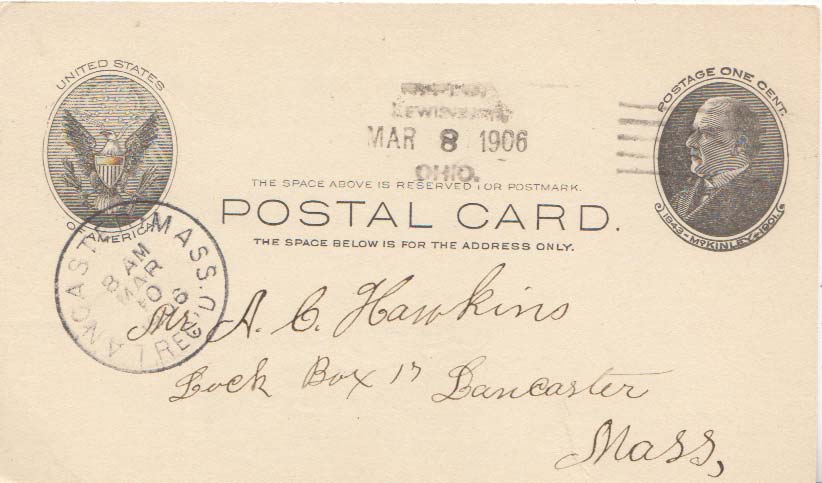 UNITED STATES
OF AMERICA
LEWISBURG
MAR 8 1906
OHIO.
POSTAGE ONE CENT.
1843-McKINLEY-1901.
THE SPACE ABOVE IS RESERVED FOR POSTMARK.
POSTAL CARD.
THE SPACE BELOW IS FOR THE ADDRESS ONLY.
LANCASTER, MASS.
REC'D.
8 AM
MAR
10
06
Mr. A. C. Hawkins
Lock Box 17 Lancaster
Mass,